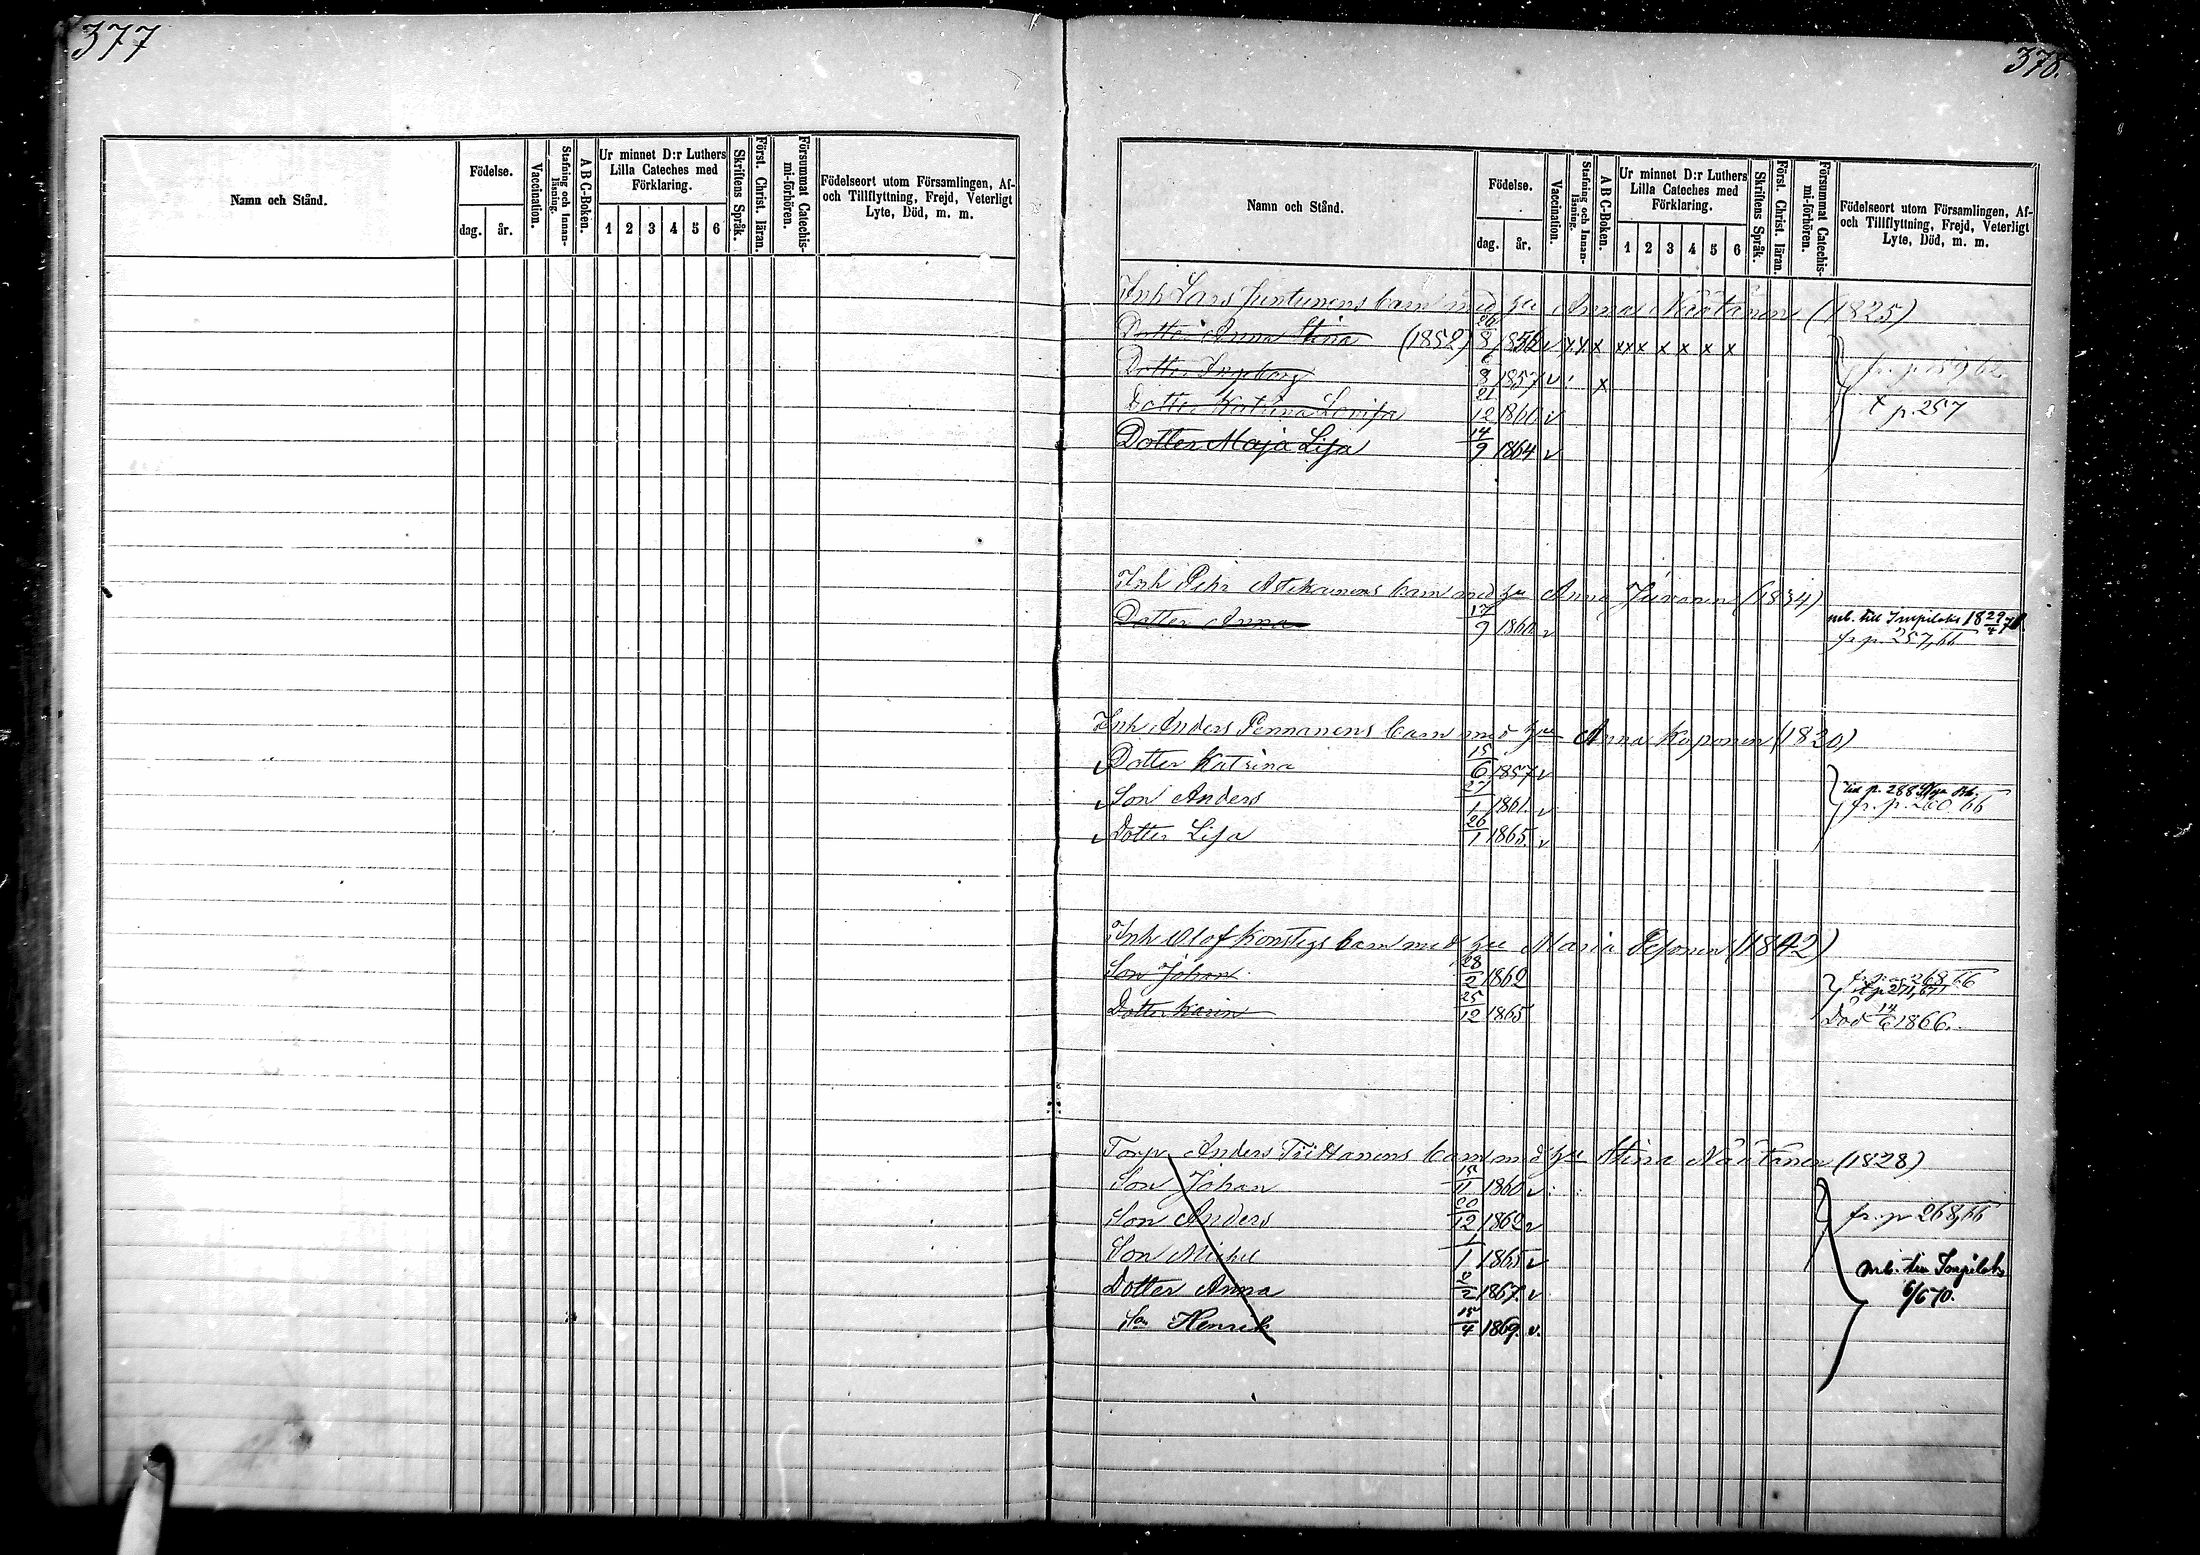 377
Namn och Stånd.
Födelse.
dag. år.
Vaccination.
Stafning och Innan-läsning.
A B C-Boken.
Ur minnet D:r Luthers
Lilla Cateches med
Förklaring.
1 2 3 4 5 6
Skriftens Språk.
Först. Christ. läran.
Försummat Catechis-mi-förhören.
Födelseort utom Församlingen, Af-
och Tillflyttning, Frejd, Veterligt
Lyte, Död, m. m.
378.
Namn och Stånd.
Födelse.
dag. år.
Vaccination.
Stafning och Innan-läsning.
A B C-Boken.
Ur minnet D:r Luthers
Lilla Cateches med
Förklaring.
1 2 3 4 5 6
Skriftens Språk.
Först. Christ. läran.
Försummat Catechis-mi-förhören.
Födelseort utom Församlingen, Af-
och Tillflyttning, Frejd, Veterligt
Lyte, Död, m. m.
Inh Lars Juntunens barn med hu Anna (1825)
Dotter Anna Stina (1852) 26/8 1852 v x x x x x x x x x x
Dotter Ingeborg 1857 v x
Dotter Katrina Lovisa 21/12 1860 v x p. 257
Dotter Maja Lisa 14/9 1864 v
Inh Pehr barn med hu Anna (1834)
Dotter Anna 17/9 1860 v
till Impilaks
fr p. 257,66
Inh Anders Pennanens barn med hu Anna Koponen (1820)
Dotter Katrina 15/6 1857 v
Son Anders 27/1 1861. v till p. 288
fr. p. 260 66
Dotter Lisa 26/1 1865. v
Inh Olof Konstigs barn med hu Maria (1842)
Son Johan 28/2 1862 fr. p. 268 66
Dotter Karin 25/12 1865 Död 14/6 1866.
Torp. Anders Tiittanens barn med hu Stina Näätänen (1828)
Son Johan 15/11 1860 v
Son Anders 20/12 1862 v fr. p 268,66
Son Michel 1/1 1865 v
Dotter Anna 2/2 1867. v till Impilaks
6/6 70.
Son Henrik 15/4 1869. v.